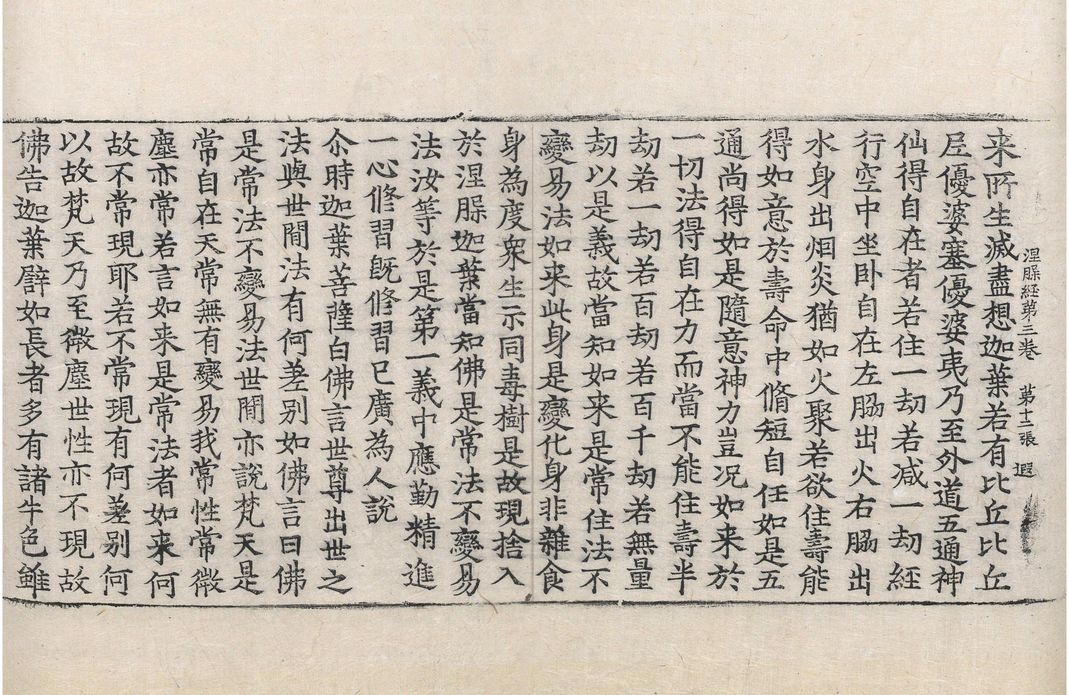 涅槃経苐三卷　苐十二張　遐
来所生滅盡想迦葉若有比丘比丘
尼優婆塞優婆夷乃至外道五通神
仙得自在者若住一劫若减一劫経
行空中坐卧自在左脇出火右脇出
水身出烟炎猶如火聚若欲住壽能
得如意於壽命中脩短自任如是五
通尚得如是隨意神力豈况如来於
一切法得自在力而當不能住壽半
劫若一劫若百劫若百千劫若無量
劫以是義故當知如来是常住法不
變易法如来此身是變化身非雜食
身為度衆生示同毒樹是故現捨入
於涅槃迦葉當知佛是常法不變易
法汝等於是第一義中應勤精進
一心修習旣修習已廣為人説
尒時迦葉菩薩白佛言世尊出世之
法與世閒法有何差别如佛言曰佛
是常法不變易法世閒亦説梵天是
常自在天常無有變易我常性常微
塵亦常若言如来是常法者如来何
故不常現耶若不常現有何差别何
以故梵天乃至微塵世性亦不現故
佛告迦葉譬如長者多有諸牛色雖